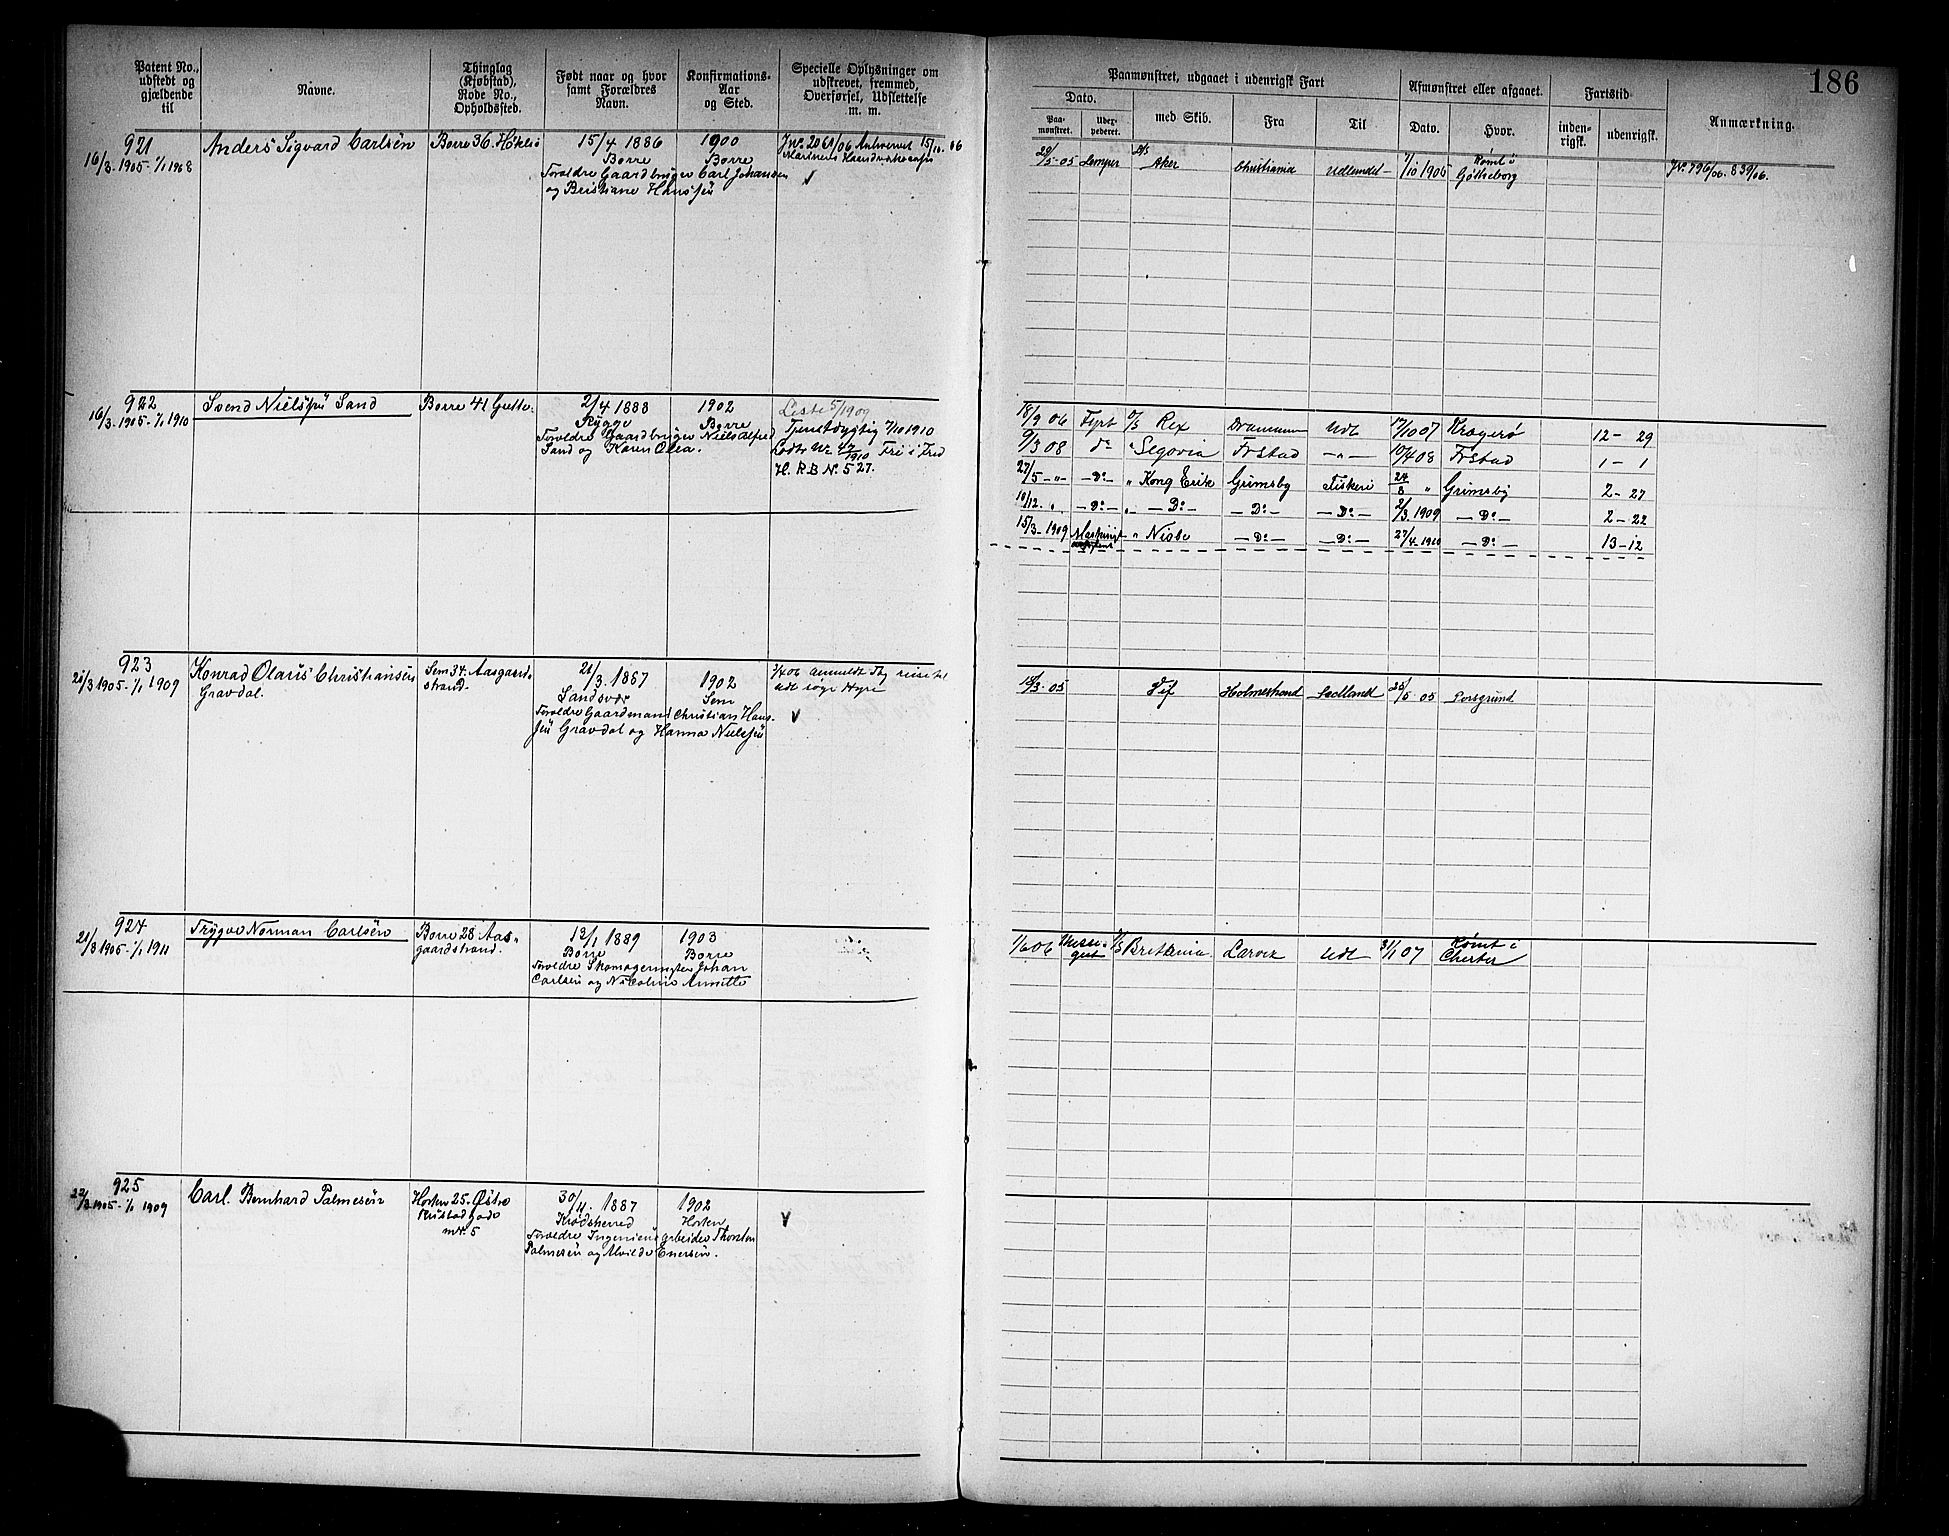 186
Patent No., udstedt og gjældende til
Navne.
Thinglag (Kjøbstad), Rode No., Opholdssted.
Født naar og hvor samt Forældres Navn.
Konfirmations- Aar og Sted.
Specielle Oplysninger om udskrevet, fremmed, Overførsel, Udslettelse m. m.
Paamønstret, udgaaet i udenrigsk Fart
Dato.
Paa- mønstret.
med Skib.
Fra
Til
Afmønstret eller afgaaet.
Dato.
Hvor.
Fartstid
inden- rigsk.
udenrigsk.
Anmærkning.
921
16/3 1905 - 1/1 1908
Anders Sigvard Carlsen
Borre 36.
15/4 1886
Borre
Forældre Gaardbruger Carl Johansen
og Hansen
1900
Borre
Jnº 2061/06 15/10 06
29/5-05 Aker Christiania Udlandet 7/10 1905 Rømt i Gøtheborg
Jnº 796/06. 839/06.
922
16/3 1905 - 1/1 1910
Svend Nielsen Sand
Borre 41
2/4 1888
Rygge
Forældre Gaardbruger Niels Alfred
Sand og Karen Olea.
1902
Borre
Liste 5/1909
Tjenstdygtig 7/10 1910
Lodtr Nr 47/1910 Fri i Fred
H. R B Nº 527.
18/9 06 Fyrb D/S Rex Drammen Udl 17/10 07 Kragerø 12 - 29
9/3 08 dº " Segovia Frstad - " - 10/4 08 Frstad 1 - 1
27/5 - " - - Dº - " Kong Erik Grimsby Fiskeri 24/8 " Grimsby 2 - 27
10/12. " - Dº - " - Dº - - Dº - - Dº - 2/3. 1909 - Dº - 2 - 22
15/3 - 1909 " - Dº - - Dº - 27/4 - 1910 - Dº - 13 - 12
923
21/3 1905 - 1/1 1909
Konrad Olaus Christiansen
Gravdal.
Sem 34. Aasgaard-
strand.
21/3. 1887
Sandsvær
Forældre Gaardmand Christian Han-
sen Gravdal og Hanna Nielsen
1902
Sem
anmeldt
søge Hyre
18/3. 05 Holmestrand 25/5 05 Porsgrund
924
21/3 1905 - 1/1 1911
Trygve Norman Carlsen
Borre 28 Aas-
gaardstrand.
13/1 1889
Borre
Forældre Skomagermester Johan
Carlsen og Nicoline Annette
1903
Borre
1/6 06 Messe- gut Brittania Larvik Udl 31/1 07 Rømt i Chester
925
22/3 1905 - 1/1 1909
Carl Bernhard Palmesen
Horten 25. Østre
mt. 5
30/4. 1887
Krødsherred
Forældre Ingeniørarbeider Thorsten
Palmesen og Alvilde Enersen.
1902
Horten